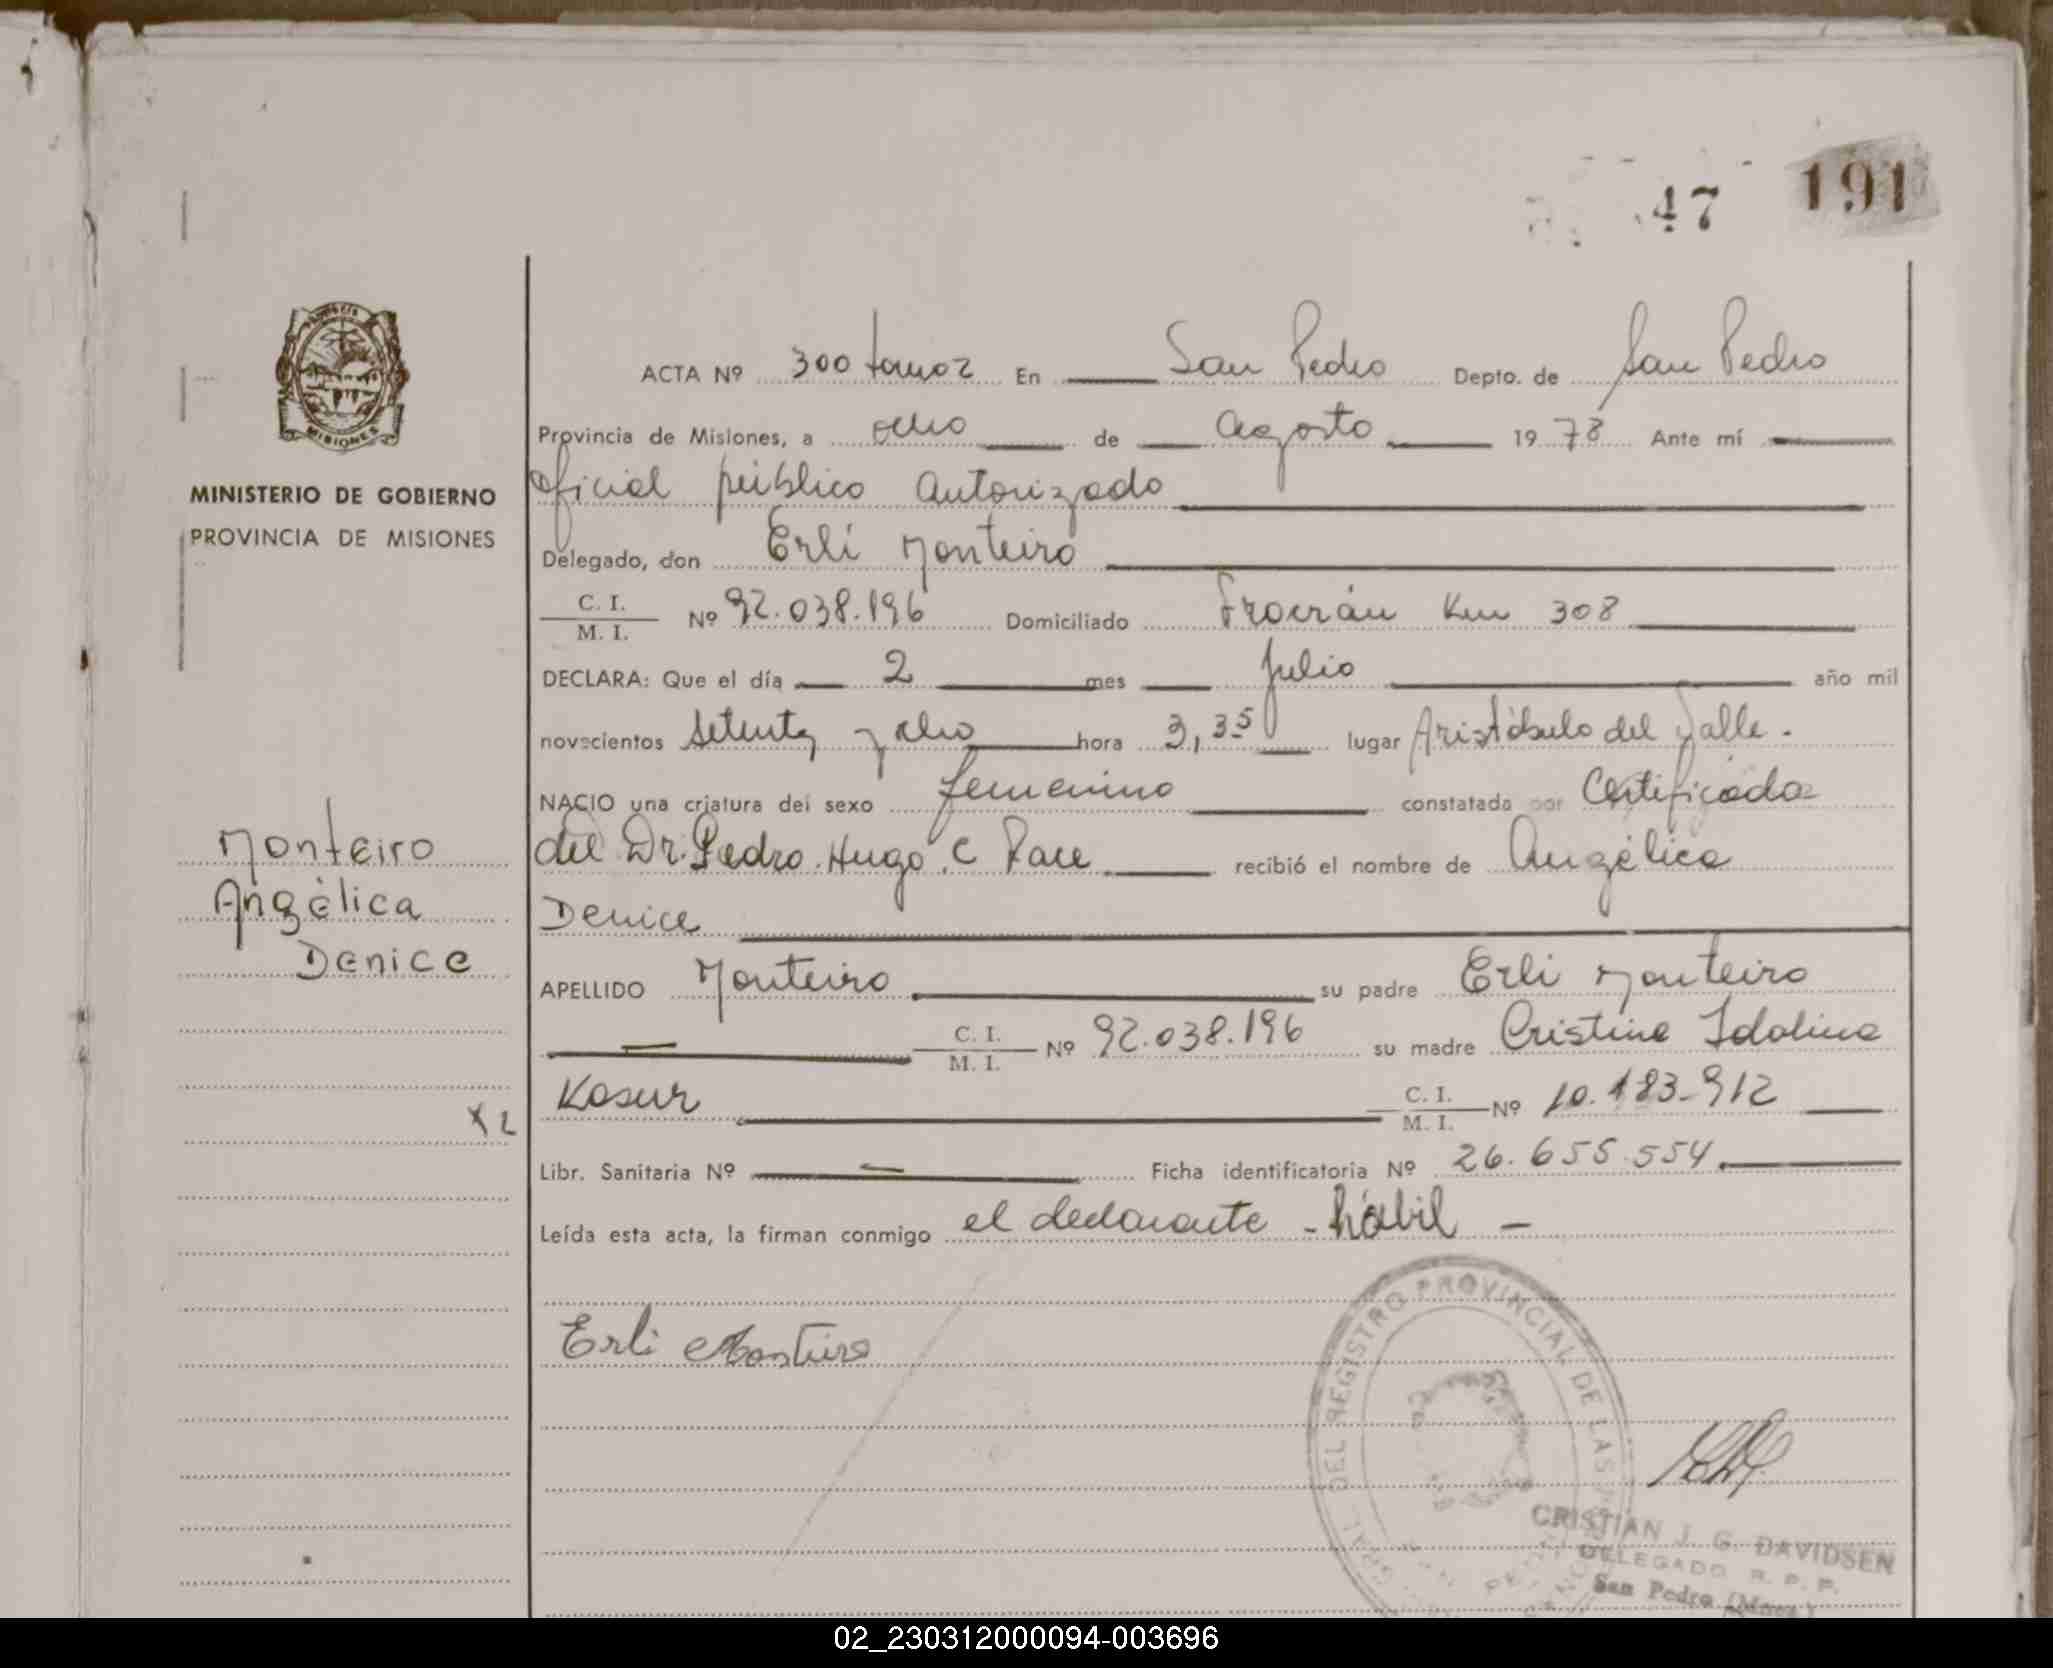 47 191
ACTA Nº 300 tomo 2 En San Pedro Depto. de San Pedro
Provincia de Misiones, a ocho de Agosto 1978 Ante mí
oficial público Autorizado
Delegado, don Erli Monteiro
C. I.
M. I. Nº 92.038.196 Domiciliado Fracrán Km 308
DECLARA: Que el día 2 mes Julio año mil
novecientos setenta y ocho hora 3,35 lugar Aristóbulo del Valle.
NACIO una criatura del sexo femenino constatada por Certificado
del Dr. Pedro Hugo C recibió el nombre de Angélica
Denice
APELLIDO Monteiro su padre Erli Monteiro
C. I.
M. I. Nº 92.038.196 su madre Cristina Idalina
Kosur C. I.
M. I. Nº 10.183.912
Libr. Sanitaria Nº — Ficha identificatoria Nº 26.655.554
Leída esta acta, la firman conmigo el declarante - hábil -
Erli Monteiro
MISIONES
MINISTERIO DE GOBIERNO
PROVINCIA DE MISIONES
Monteiro
Angélica
Denice
X2
DEL REGISTRO PROVINCIAL DE LAS
CRISTIAN J. G. DAVIDSEN
DELEGADO R. P. P.
San Pedro (Mnes.)
02_230312000094-003696